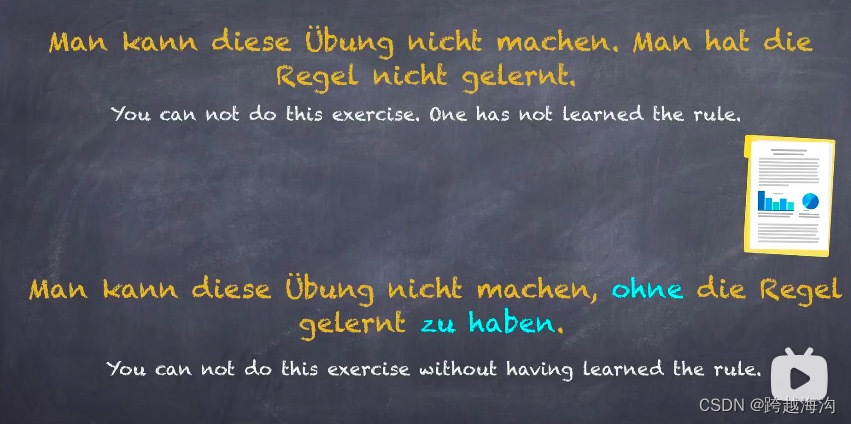 Man kann diese Übung nicht machen. Man hat die
Regel nicht gelernt.
You can not do this exercise. One has not learned the rule.
Man kann diese Übung nicht machen, ohne die Regel
gelernt zu haben.
You can not do this exercise without having learned the rule.
CSDN @跨越海沟